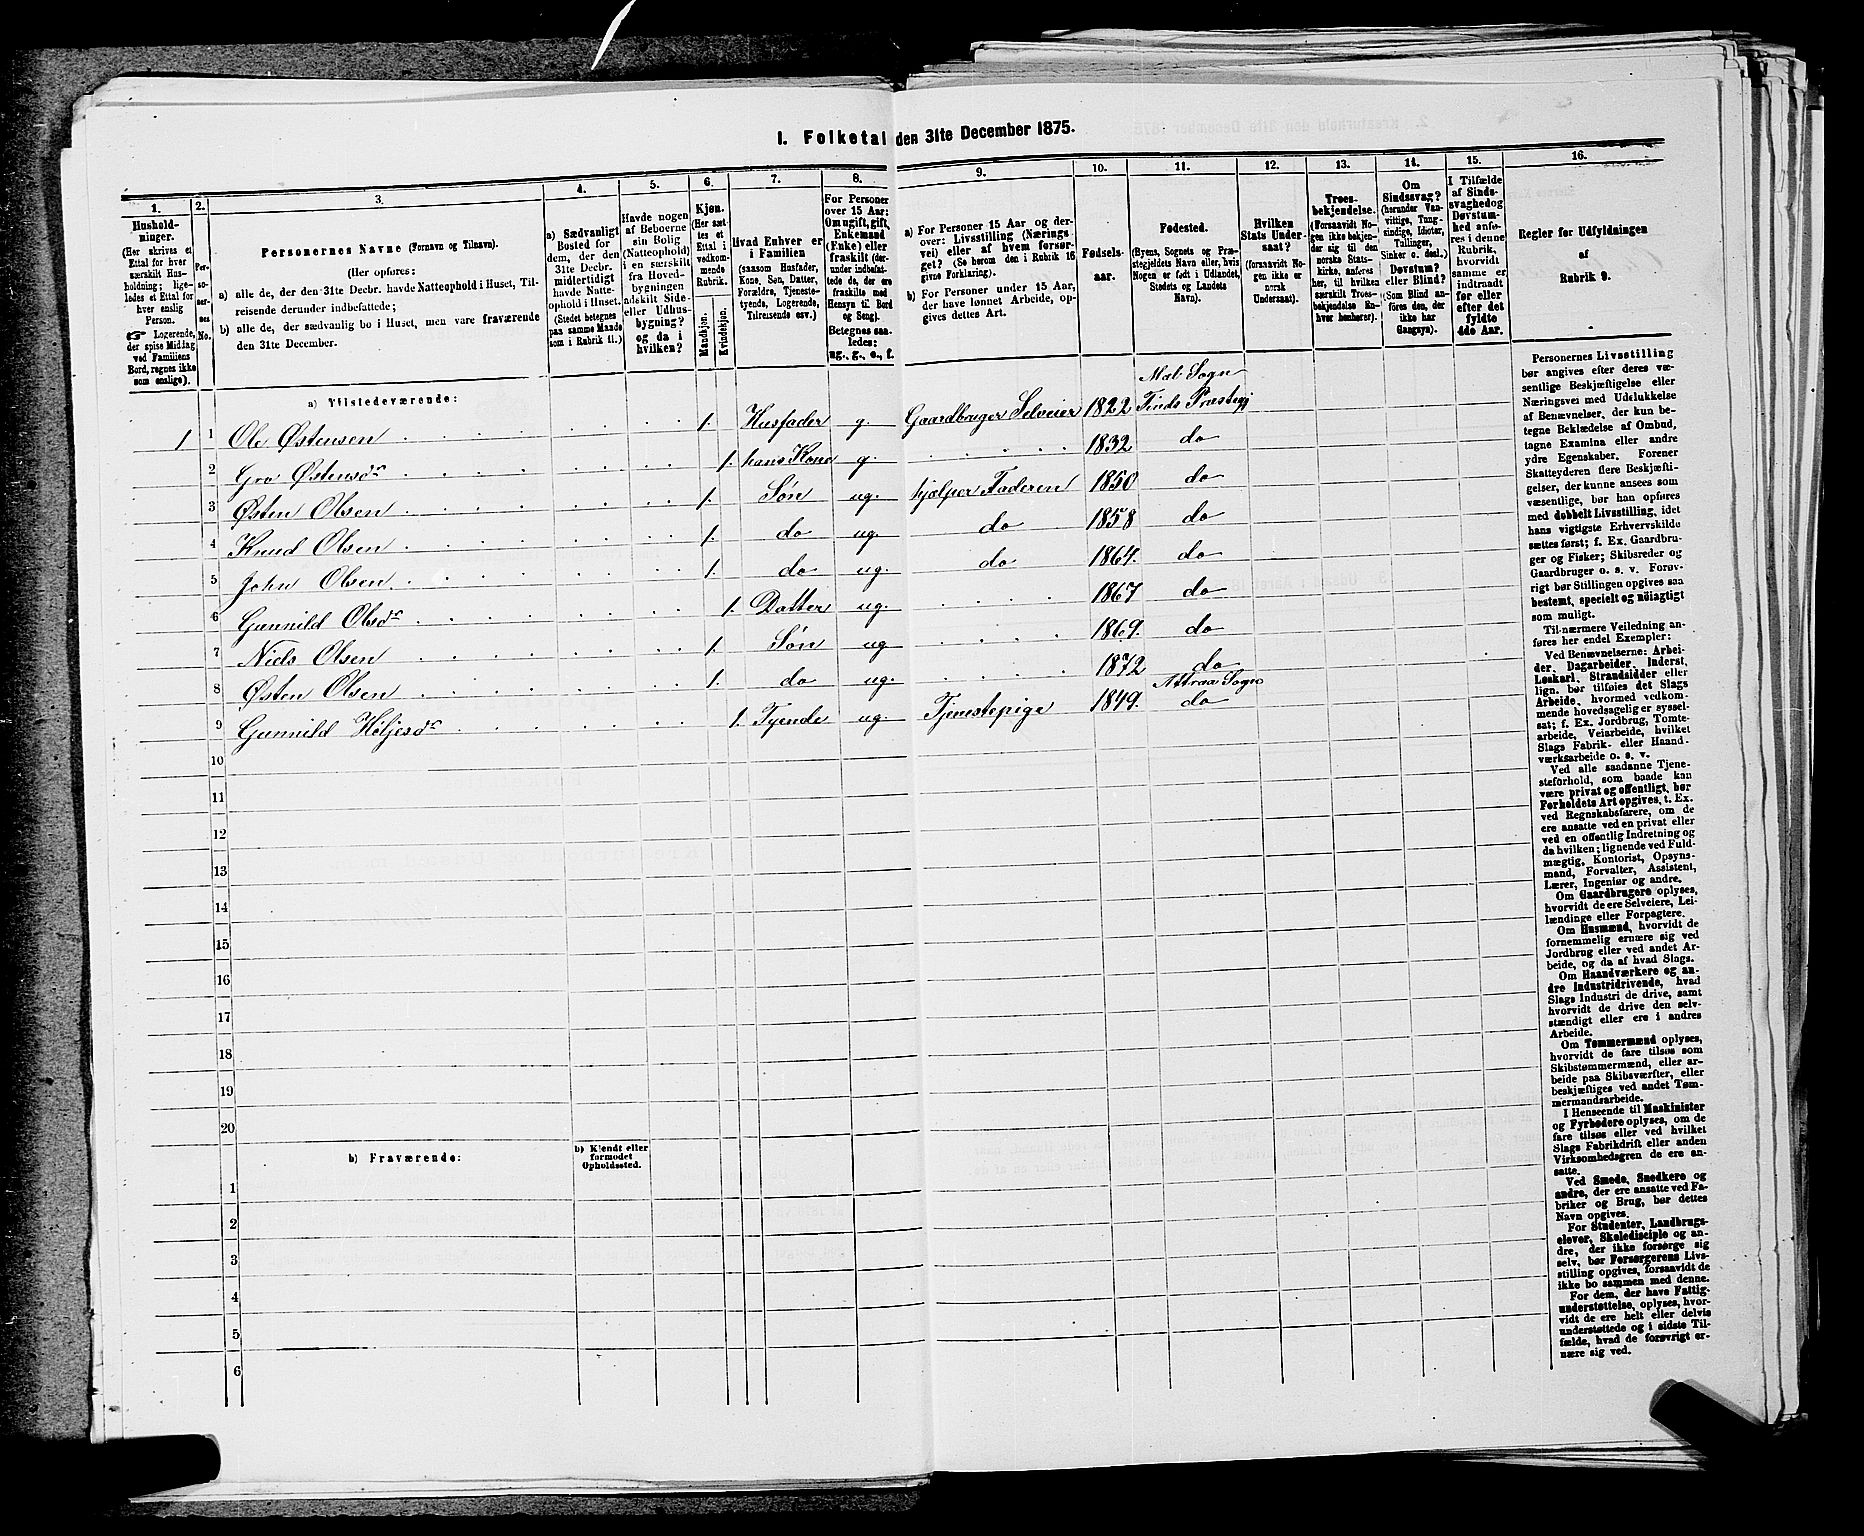 I. Folketal den 31te December 1875.
1. 2. 3. 4. 5. 6. 7. 8. 9. 10. 11. 12. 13. 14. 15. 16.
Hushold-
ninger.
(Her skrives et
Ettal for hver
særskilt Hus-
holdning; lige-
ledes et Ettal for
hver enslig
Person.
☞ Logerende,
der spise Middag
ved Familiens
Bord, regnes ikke
som enslige).
Per-
soner-
nes
No.
Personernes Navne (Fornavn og Tilnavn).
(Her opføres:
a) alle de, der den 31te Decbr. havde Natteophold i Huset, Til-
reisende derunder indbefattede;
b) alle de, der sædvanlig bo i Huset, men vare fraværende
den 31te December.
a) Sædvanligt
Bosted for
dem, der den
31te Decbr.
midlertidigt
havde Natte-
ophold i Huset.
(Stedet betegnes
paa samme Maade
som i Rubrik 11.)
Havde nogen
af Beboerne
sin Bolig
(Natteophold)
i en særskilt
fra Hoved-
bygningen
adskilt Side-
eller Udhus-
bygning?
og da i
hvilken?
Kjøn.
(Her sæt
tes et
Ettal i
vedkom-
mende
Rubrik.
Mandkjøn.
Kvindekjøn.
Hvad Enhver er
i Familien
(saasom Husfader,
Kone, Søn, Datter,
Forældre, Tjeneste-
tyende, Logerende,
Tilreisende osv.)
For Personer
over 15 Aar:
Om ugift, gift,
Enkemand
(Enke) eller
fraskilt (der-
under indbefat-
tede de, der ere
fraskilte med
Hensyn til Bord
og Seng).
Betegnes saa-
ledes:
ug., g., e., f.
a) For Personer 15 Aar og der-
over: Livsstilling (Nærings-
vei) eller af hvem forsør-
get? (Se herom den i Rubrik 16
givne Forklaring).
b) For Personer under 15 Aar,
der have lønnet Arbeide, op-
gives dettes Art.
Fødsels-
aar.
Fødested.
(Byens, Sognets og Præ-
stegjeldets Navn eller, hvis
Nogen er født i Udlandet,
Stedets og Landets
Navn).
Hvilken
Stats Under-
saat?
(forsaavidt No-
gen ikke er
norsk
Undersaat).
Troes-
bekjendelse.
(Forsaavidt No-
gen ikke bekjen-
der sig til den
norske Stats-
kirke, anføres
her, til hvilken
særskilt Troes-
bekjendelse En-
hver henhører).
Om
Sindssvag?
(herunder Van-
vittige, Tung-
sindige, Idioter,
Tullinger,
Sinker o. desl.)
Døvstum?
eller Blind?
(Som Blind an-
føres den, der
ikke har
Gangsyn).
I Tilfælde
af Sinds-
svaghed og
Døvstum-
hed anfø-
res i denne
Rubrik,
hvorvidt
samme er
indtraadt
før eller
efter det
fyldte
4de Aar.
Regler for Udfyldningen
af
Rubrik 9.
a) Tilstedeværende:
Mæl Sogn
1 1 Ole Østensen 1. Husfader g. Gaardbruger Selveier 1822 Tinds Præstegj
2 Gro Østensdr 1. hans Kone g. 1832 do
3 Østen Olsen 1. Søn ug. hjælper Faderen 1850 do
4 Knud Olsen 1. do ug. do 1858 do
5 John Olsen 1. do ug. do 1864. do
6 Gunnild Olsdr 1. Datter ug. 1867 do
7 Niels Olsen 1. Søn ug 1869. do
8 Østen Olsen 1. do ug. 1872 do
Attraa Sogn
9 Gunnild Høljesdr 1. Tyende ug. Tjenestepige 1849. do
10
11
12
13
14
15
16
17
18
19
20
b) Fraværende:
b) Kjendt eller
formodet
Opholdssted.
1
2
3
4
5
6
Personernes Livsstilling
bør angives efter deres væ-
sentlige Beskjæftigelse eller
Næringsvei med Udelukkelse
af Benævnelser, der kun be-
tegne Beklædelse af Ombud,
tagne Examina eller andre
ydre Egenskaber. Forener
Skatteyderen flere Beskjæfti-
gelser, der kunne ansees som
væsentlige, bør han opføres
med dobbelt Livsstilling, idet
hans vigtigste Erhvervskilde
sættes først; f. Ex. Gaardbru-
ger og Fisker; Skibsreder og
Gaardbruger o. s. v. Forøv-
rigt bør Stillingen opgives saa
bestemt, specielt og nöiagtigt
som muligt.
Til nærmere Veiledning an-
føres her endel Exempler:
Ved Benævnelserne: Arbei-
der, Dagarbeider, Inderst,
Løskarl, Strandsidder eller
lign. bør tilføies det Slags
Arbeide, hvormed vedkom-
mende hovedsagelig er syssel-
sat; f. Ex. Jordbrug, Tomte-
arbeide, Veiarbeide, hvilket
Slags Fabrik- eller Haand-
værksarbeide o. s. v.
Ved alle saadanne Tjene-
steforhold, som baade kan
være privat og offentligt, bør
Forholdets Art opgives, t. Ex.
ved Regnskabsførere, om de
ere ansatte ved en privat eller
ved en offentlig Indretning og
da hvilken; lignende ved Fuld-
mægtig, Kontorist, Opsyns-
mand, Forvalter, Assistent,
Lærer, Ingeniør og andre.
Om Gaardbrugere oplyses,
hvorvidt de ere Selveiere, Lei-
lændinge eller Forpagtere.
Om Husmænd, hvorvidt de
fornemmelig ernære sig ved
Jordbrug eller ved andet Ar-
beide, og da af hvad Slags.
Om Haandværkere og an-
dre Industridrivende, hvad
Slags Industri de drive, samt
hvorvidt de drive den selv-
stændigt eller ere i andres
Arbeide.
Om Tømmermænd oplyses,
hvorvidt de fare tilsøs som
Skibstømmermænd, eller ar-
beide paa Skibsværfter, eller
beskjæftiges ved andet Tøm-
mermandsarbeide.
I Henseende til Maskinister
og Fyrbødere oplyses, om de
fare tilsøs eller ved hvilket
Slags Fabrikdrift eller anden
Virksomhedsgren de ere an-
satte.
Ved Smede, Snedkere og
andre, der ere ansatte ved Fa-
briker og Brug, bør dettes
Navn opgives.
For Studenter, Landbrugs-
elever, Skoledisciple og an-
dre, der ikke forsørge sig
selv, bør Forsørgerens Livs-
stilling opgives, forsaavidt de
ikke bo sammen med denne.
For dem, der have Fattig-
understøttelse, oplyses, hvor-
vidt de ere helt eller delvis
understøttede og i sidste Til-
fælde, hvad de forøvrigt er-
nære sig ved.